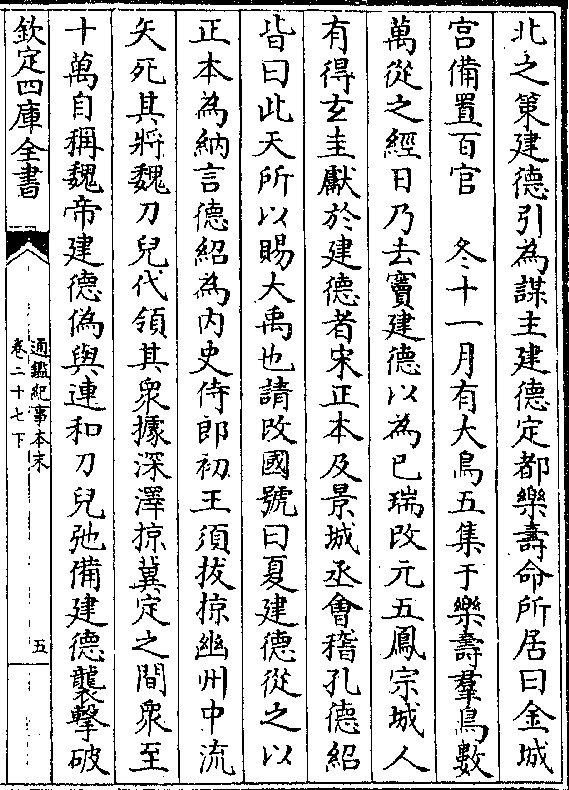 北之策建德引為謀主建德定都樂壽命所居曰金城
宫備置百官　冬十一月有大鳥五集于樂壽羣鳥數
萬從之經日乃去竇建德以為己瑞改元五鳳宗城人
有得玄圭獻於建德者宋正本及景城丞會稽孔德紹
皆曰此天所以賜大禹也請改國號曰夏建德從之以
正本為納言德紹為内史侍郎初王須拔掠幽州中流
矢死其將魏刀兒代領其衆據深澤掠冀定之間衆至
十萬自稱魏帝建德偽與連和刀兒弛備建德襲擊破
欽定四庫全書
通鑑紀事本末
卷二十七下
五